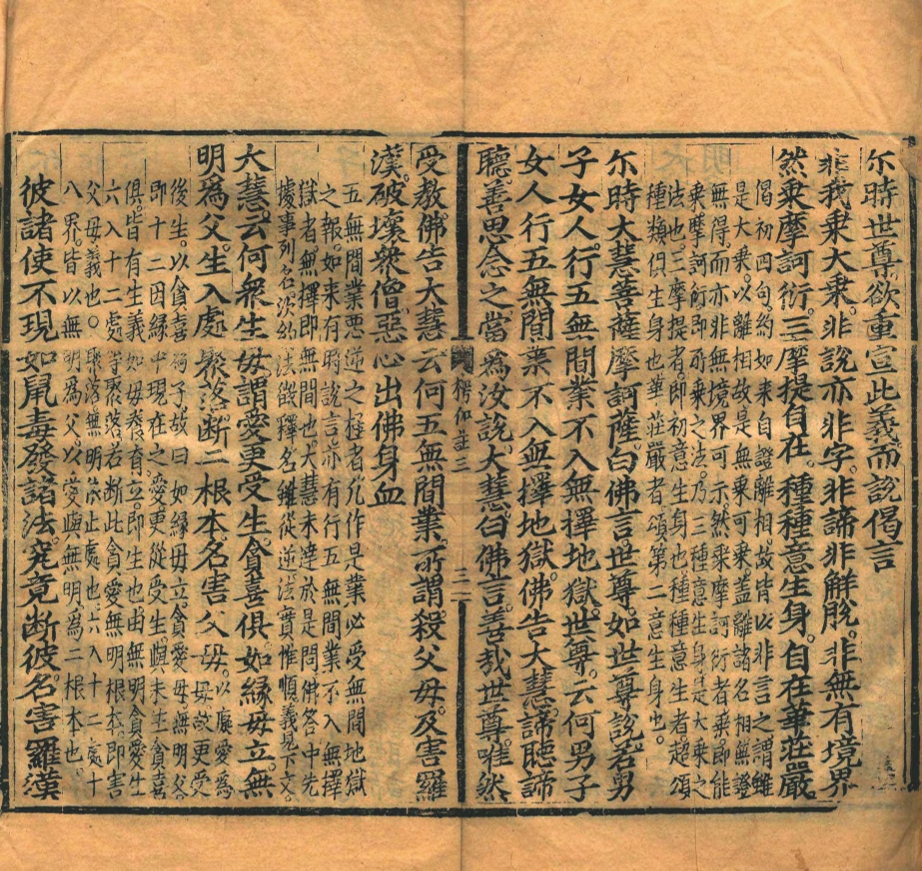 尒時世尊欲重宣此義。而說偈言
非我乗大乗。非說亦非字。非諦非解脫。非無有境界
然乗摩訶衍。三摩提自在。種種意生身。自在華莊嚴
偈初四句約如來自證離相。故皆以非言之。謂雖
是大乗。以非離相故是無乗可乗。蓋離諸名相無證
無得。而亦非無境界可示。然乗摩訶衍者乗即能
乗摩訶衍即所乗之法。乃三種意生身是大乗之
法也。三摩提者即初意生身也種種意生者超頌
種類俱生身也華莊嚴者。頌第二意生身也。
尒時大慧菩薩摩訶薩白佛言世尊。如世尊說。若男
子女人。行五無間業不入無擇地獄。世尊。云何男子
女人行五無間業不入無擇地獄。佛告大慧諦聽諦
聽。善思念之。當為汝說。大慧。白佛言。善哉世尊。唯然
楞伽註三 三二
受教。佛告大慧云何五無間業。所謂。殺父母。及害羅
漢。破壞衆僧。惡心出佛身血
五無間業惡逆之極者。凡作是業。必受無間地獄
之報。如來有時說言。亦有行五無間業不入無擇
獄者無擇即無間也。大慧未達於是問佛答中先
據事列名次約法做釋名雖從逆法實惟順義見下文。
大慧。云何衆生母。謂愛更受生。貪喜俱。如緣母立。無
明為父。生入處聚落。斷二根本。名害父母。
後生。以貪喜
即十二因緣中現在之愛更從受生。與未至貪喜
俱。皆有生義如母養育立。即生也。由無明貪愛生
六入十二處等聚落。若斷此貪愛無明根本。即害
父母義也。○聚落無明依止處也。六入十二處十
八界。皆以無明為父。以愛與無明。為二根本也。
彼諸使不現如鼠毒發。諸法究竟斷彼。名害羅漢